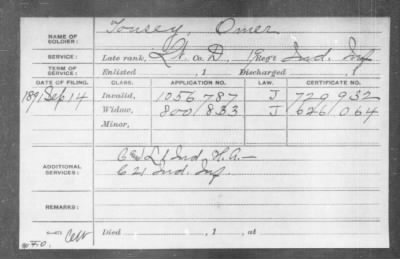 NAME OF SOLDIER: Tousey, Omer
SERVICE: Late rank, Lt. Co. D, 19 Reg't Ind. Inf.
TERM OF SERVICE: Enlisted , 1 Discharged , 1
DATE OF FILING. CLASS. APPLICATION NO. LAW. CERTIFICATE NO.
1891 Sep 14 Invalid, 1056787 J 720932
Widow, 800833 J 626064
Minor,
ADDITIONAL SERVICES: Lt Ind. H. A.
Ind. Inf.
REMARKS:
Died , 1 , at